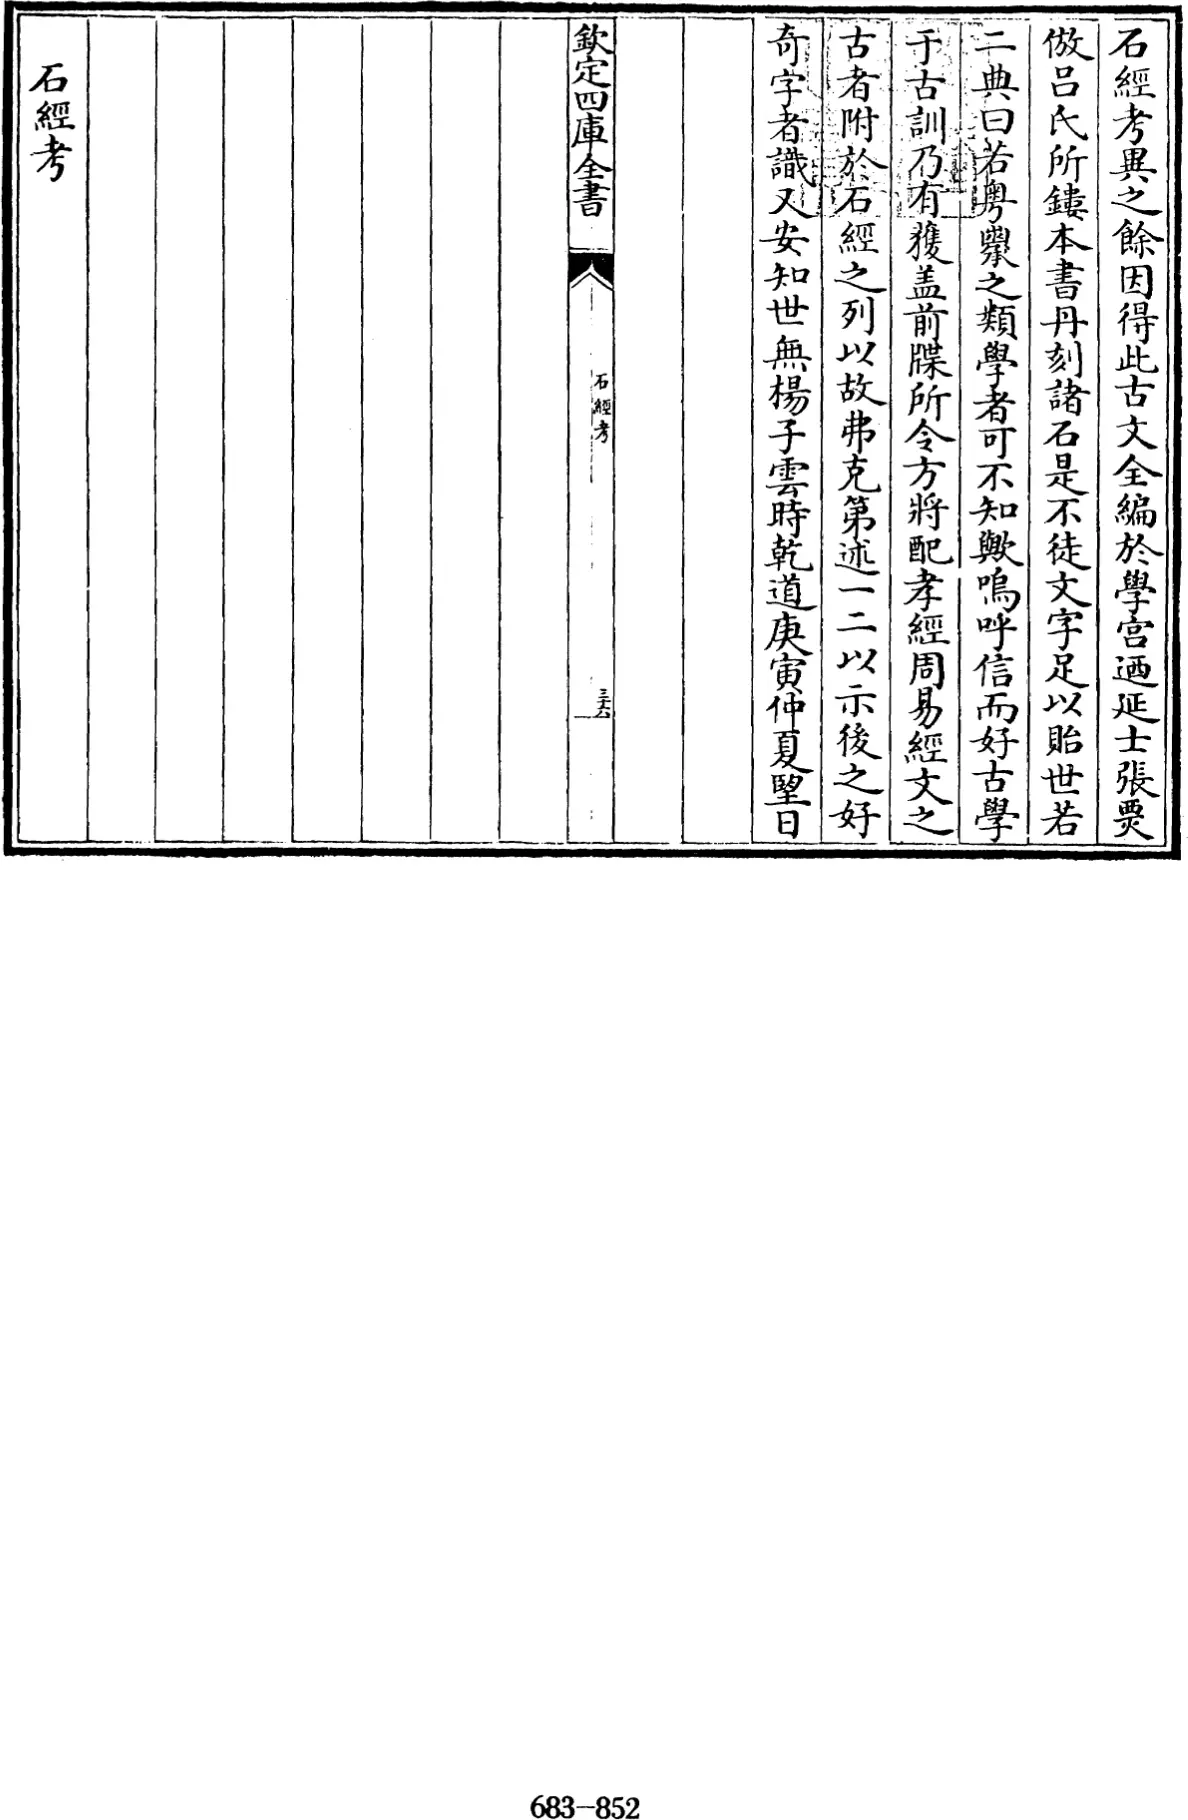 石經考異之餘因得此古文全編於學宮迺延士張㷄
倣呂氏所鏤本書丹刻諸石是不徒文字足以貽世若
二典曰若粤䍤之類學者可不知歟嗚呼信而好古學
于古訓乃有獲盖前牒所令方將配孝經周易經文之
古者附於石經之列以故弗克第述一二以示後之好
奇字者識又安知世無楊子雲時乾道庚寅仲夏望日
欽定四庫全書
石經考
三十六
石經考
683-852